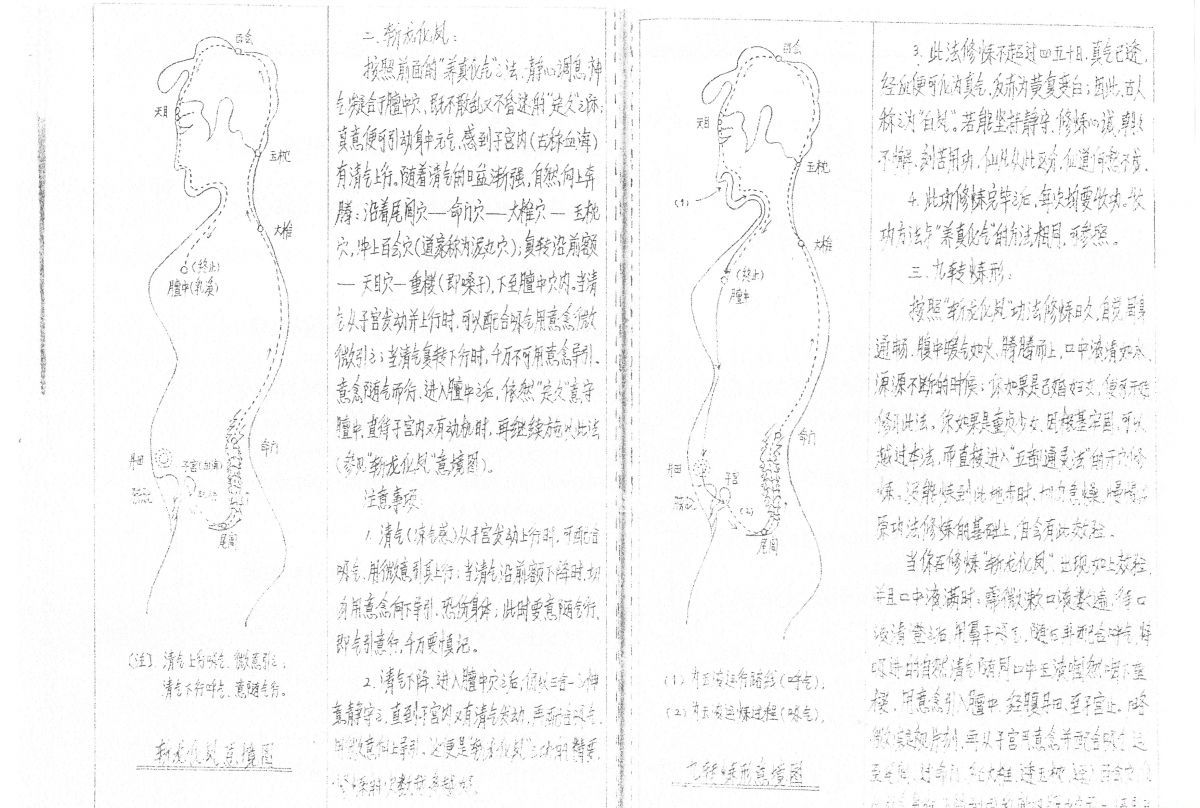 百会
天目
玉枕
大椎
(终止)
膻中(乳溪)
命门
丹田
子宫(血海)
尾闾
(注): 清气上行吸气,微意引之;
清气下行呼气,意随气行。
斩龙化凤意境图
二、斩龙化凤:
按照前面的“养真化气”之法,静心调息,神
气凝合于膻中穴,既不散乱又不昏迷的“定久”之际,
真意便可引动身中元气,感到子宫内(古称血海)
有清气上行。随着清气的日益渐强,自然向上奔
腾:沿着尾闾穴——命门穴——大椎穴——玉枕
穴,冲上百会穴(道家称为泥丸穴);复转沿前额
——天目穴——重楼(即嗓子),下至膻中穴内。当清
气从子宫发动并上行时,可以配合吸气用意念微微
微引之;当清气复转下行时,千万不可用意念导引,
意念随气而行,进入膻中之后,依然“定久”意守
膻中,直待子宫内又有动机时,再继续方施以此法
(参见“斩龙化凤”意境图)。
注意事项
1. 清气(凉气感)从子宫发动上行时,可配合
吸气,用微意引其上行;当清气沿前额下降时,切
勿用意念向下导引,恐伤身体;此时要意随气行,
即气引意行,千万要慎记。
2. 清气下降,进入膻中穴之后,仍须
意静守之,直到子宫内又有清气发动,再配合吸气,
用微意向上导引。这便是“斩龙化凤”之功的精要
百会
天目
(1)
玉枕
大椎
(终止)
膻中
命门
丹田
子宫
(2)
尾闾
(1) 为玉液运行路线(呼气),
(2) 为玉液运炼过程(吸气),
九转炼形意境图
3. 此法修炼不超过四五十日,真气已透,
经血便可化为真气,反赤为黄真变白;因此,古人
称之为“白凤”。若能坐卧静守,修炼心诚,朝夕
不懈,刻苦用功,仙凡从此区分,仙道何愁不成。
4. 此功修炼完毕之后,每次均要收功。收
功方法与“养真化气”的方法相同,可参照。
三、九转炼形:
按照“斩龙化凤”功法修炼日久,自觉周身
通畅,腹中暖气如火,腾腾而上,口中液清如冰,
源源不断的时候;你如果是已婚妇女,便可开始
修习此法。你如果是童贞少女,因根基牢固,可以
越过本法,而直接进入“五部通灵法”的开穴修
炼。没能炼到此地步时,切勿急燥,慢慢在
原功法修炼的基础上,自会有此效验。
当你在修炼“斩龙化凤”出现如上效验,
并且口中液满时;需微漱口液数遍,待口
液清澄之后,用鼻子吸气,随后再配合呼气将
吸进的自然清气随同口中玉液咽
楼,用意念引入膻中,经腹丹田,至子宫止。略
微定想片刻,再从子宫用意念并配合吸气运
至尾闾,过命门,经大椎,透玉枕,